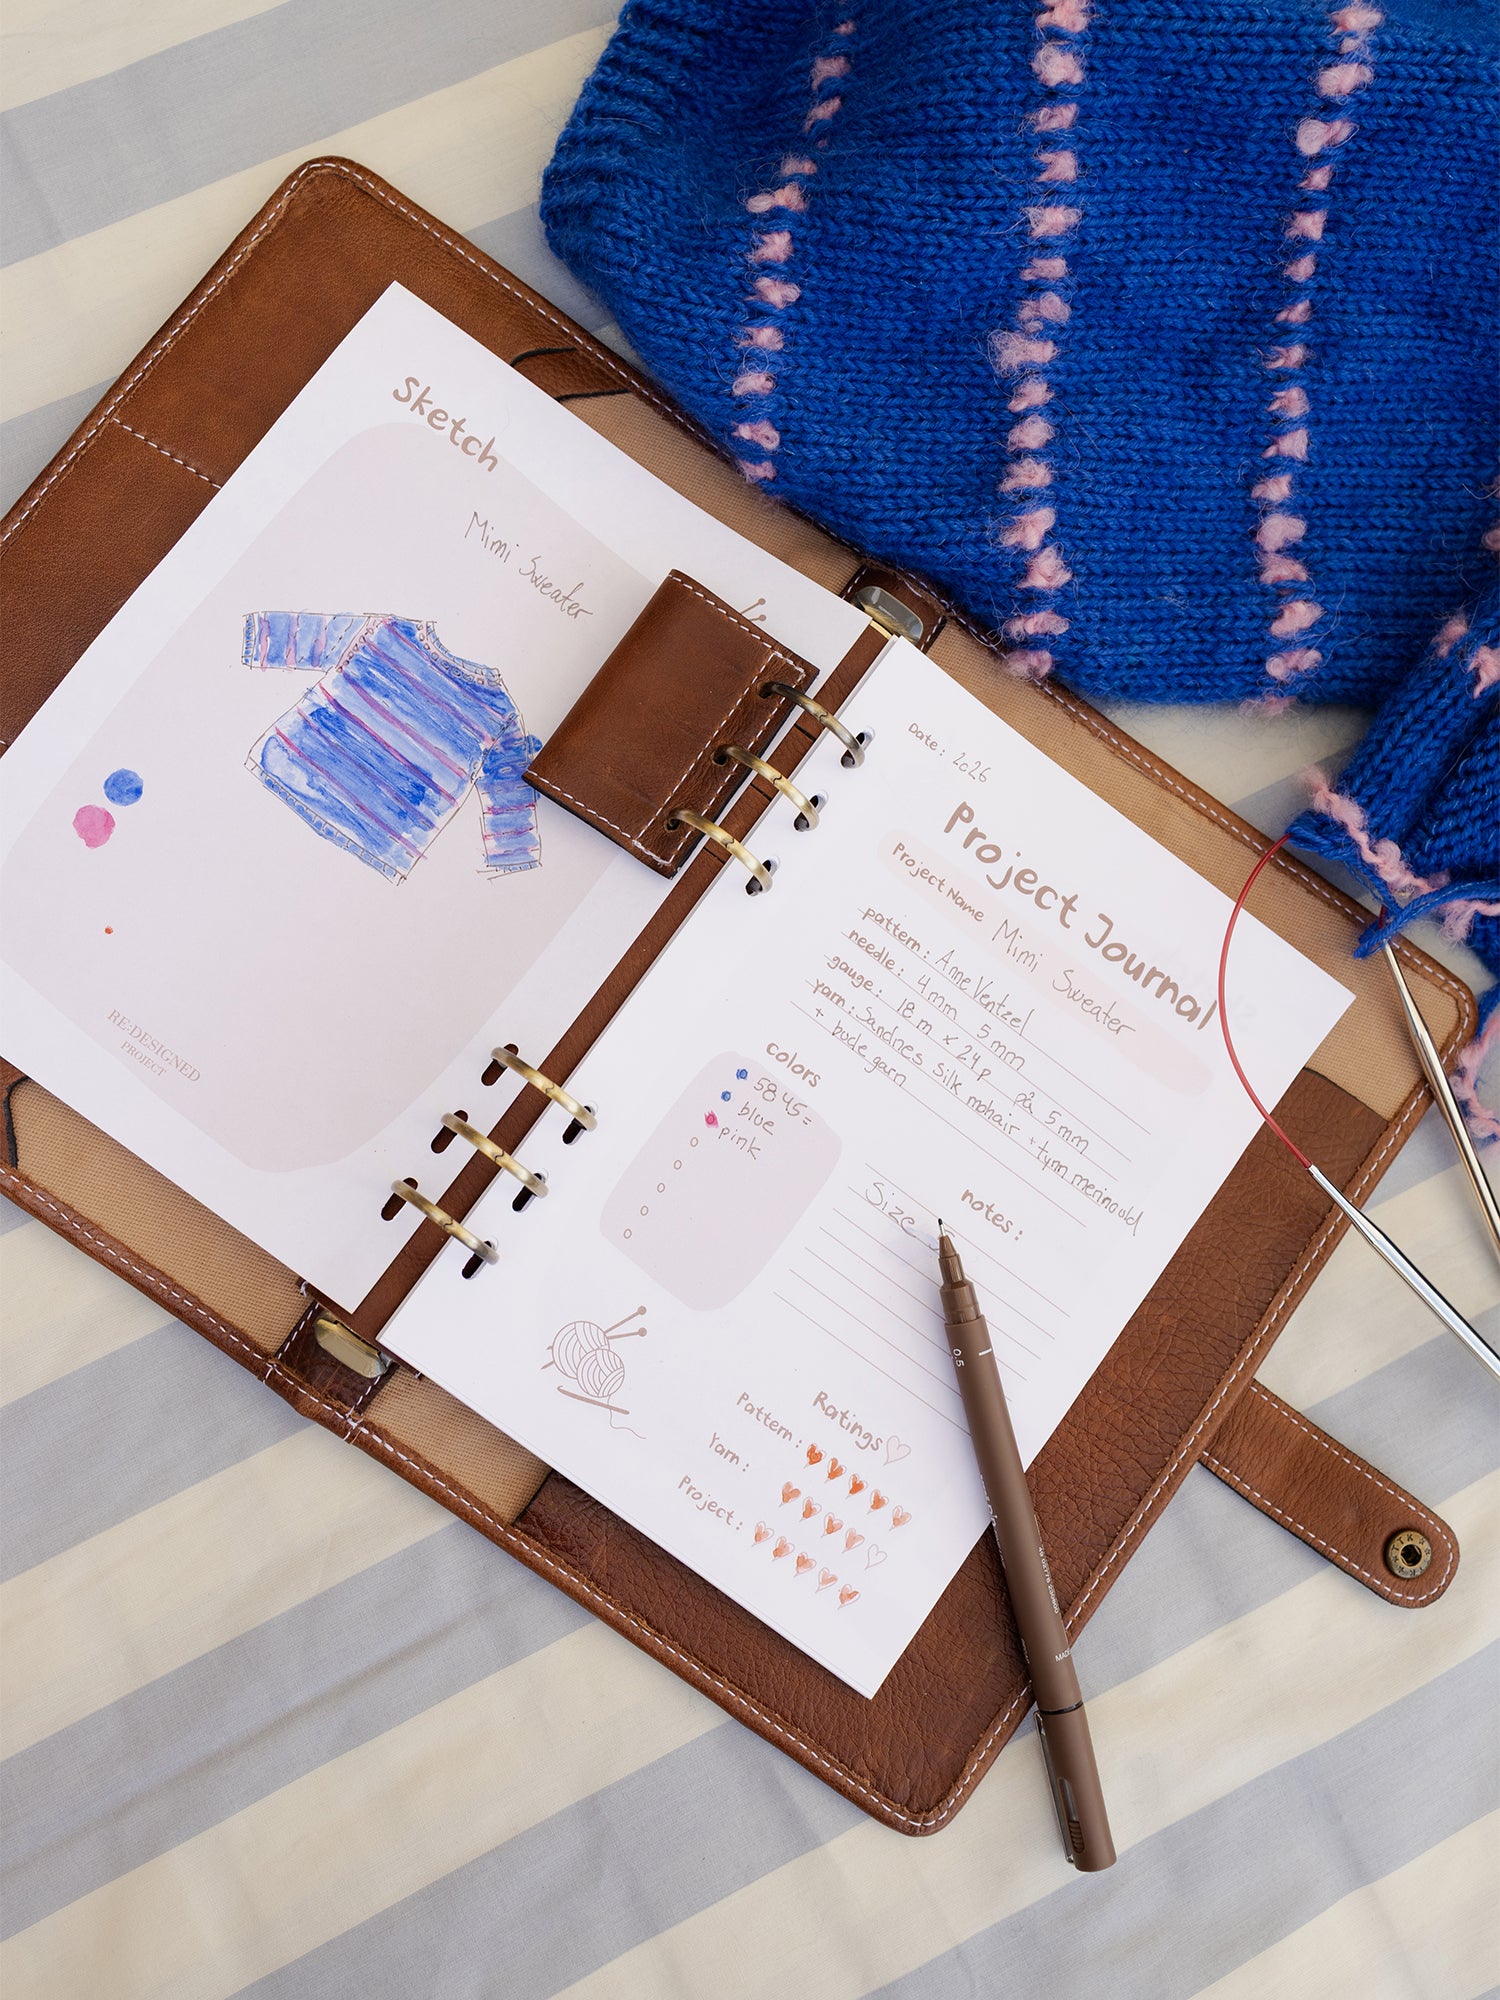 Sketch
Mimi Sweater
RE:DESIGNED
PROJECT
Date: 2026
Project Journal
Project Name Mimi Sweater
pattern: Anne Ventzel
needle: 4mm 5mm
gauge: 18 m x 24 p på 5mm
yarn: Sandnes Silk mohair + tynn merinould
+ bode garn
colors
5845=
blue
pink
notes:
Size
Ratings
Pattern:
Yarn:
Project:
0.5